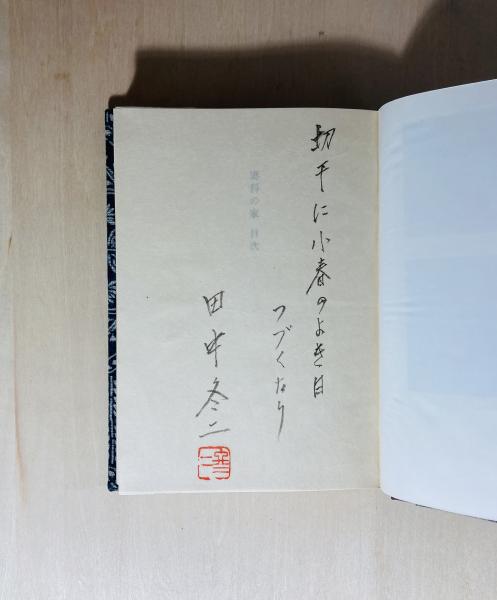 切干に小春のよき日
つづくなり
田中冬二
蓼科の家 目次